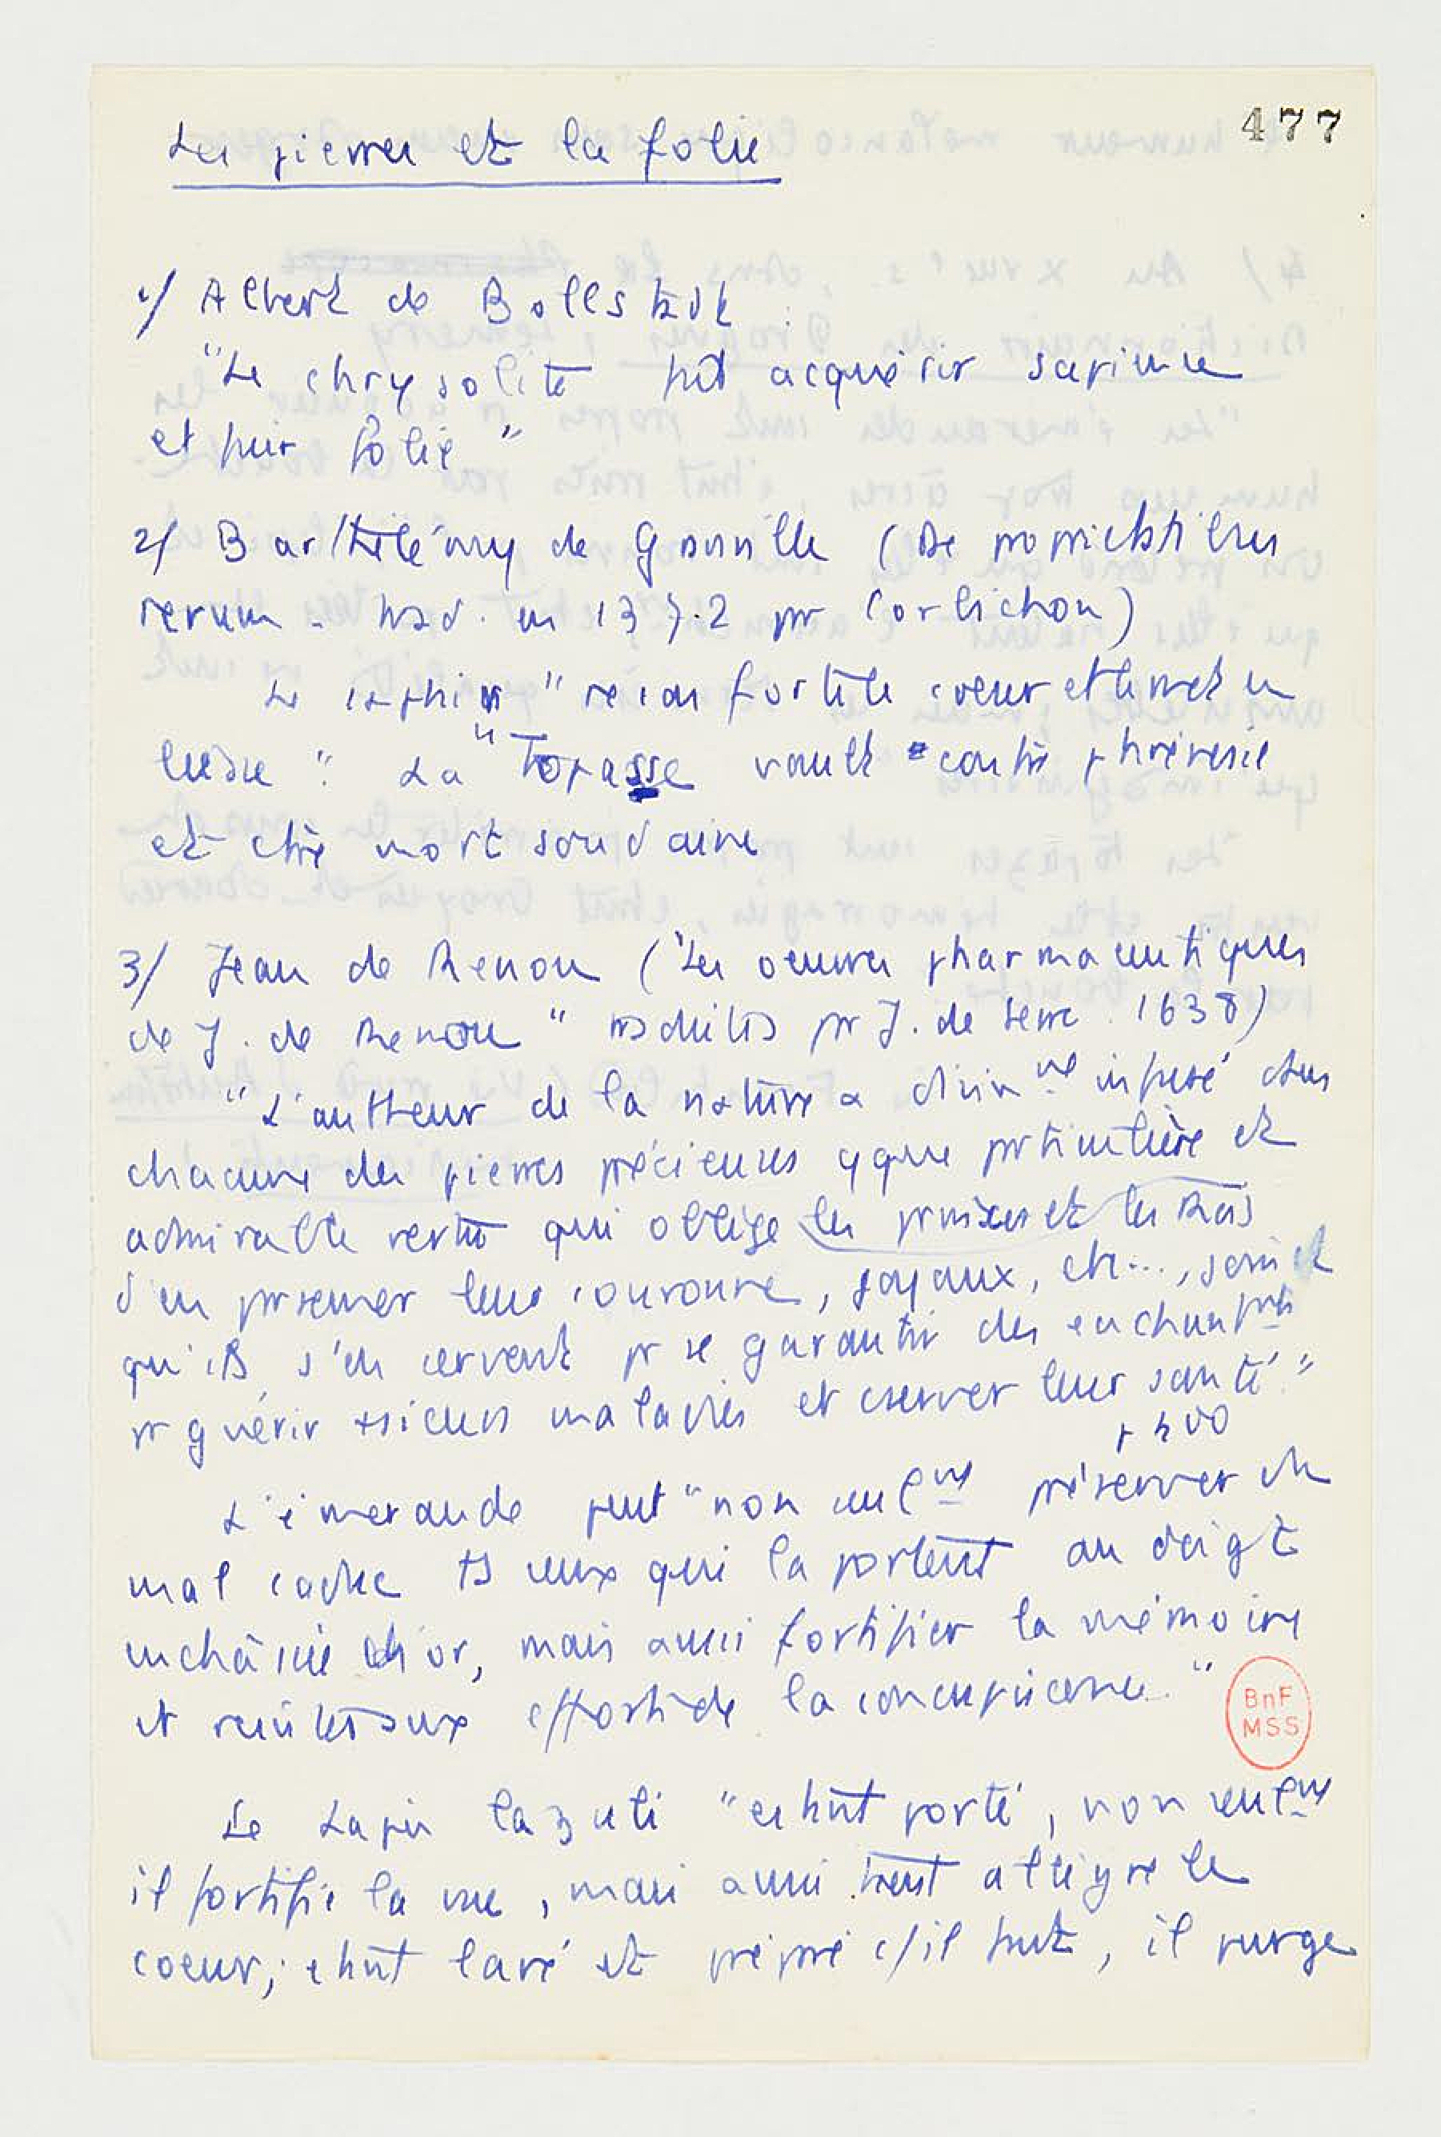 477
Les pierres et la folie
1/ Albert de Bollstadt :
"Le chrysolite fait acquérir sapience
et fuir folie"
2/ Barthélémy de Glanville (De proprietatibus
rerum - trad. en 1372 par Corbichon)
Le saphir "reconforte le coeur et le met en
liesse". La "Topasse vault contre phrénesie
et contre mort soudaine
3/ Jean de Renou ("Les oeuvres pharmaceutiques
de J. de Renou" traduites pr J. de Serre. 1638)
"L'autheur de la nature a divinemt infusé dans
chacune des pierres précieuses qque prticulière et
admirable vertu qui oblige les princes et les Rois
d'en prsemer leur couronne, joyaux, etc...,
qu'ils s'en servent pr se garantir des enchantemts
pr guérir +sieurs maladies et cserver leur santé."
p 200
L'émeraude peut "non seulmt préserver du
mal caduc ts ceux qui la portent au doigt
enchâssée d'or, mais aussi fortifier la mémoire
et resister aux efforts de la concupiscence."
BnF
MSS
Le Lapis lazuli "estant porté, non seulmt
il fortifie la vue, mais aussi tient allègre le
coeur; estant lavé et prépré c/il faut, il purge